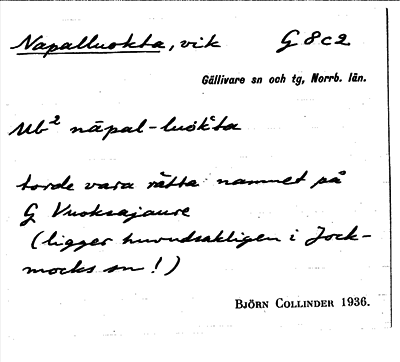 Napalluokta, vik G 8 c 2
Gällivare sn och tg, Norrb. län.
Ub² näpal-luok'ta
torde vara rätta namnet på
G Vuoksajaure
(ligger huvudsakligen i Jock-
mocks sn!)
BJÖRN COLLINDER 1936.